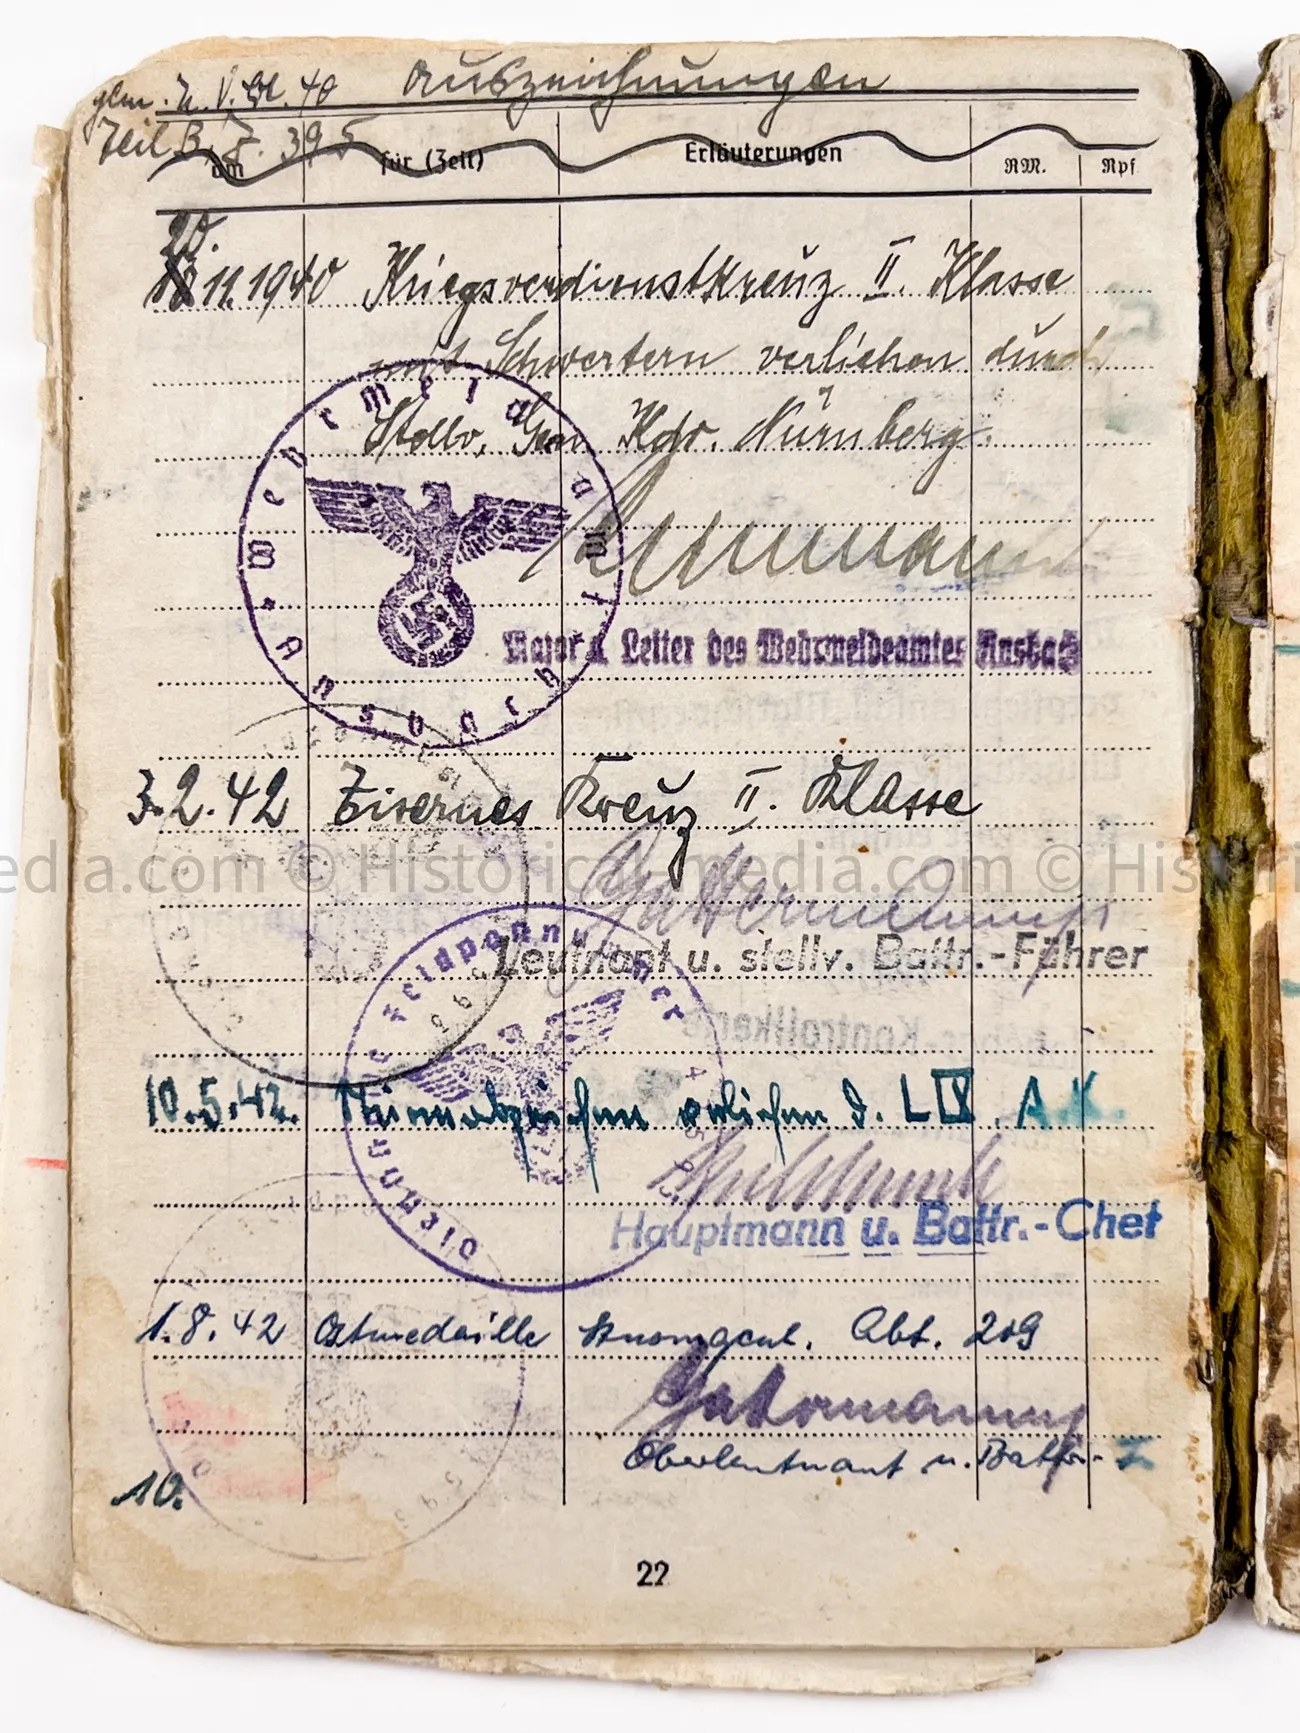 Auszeichnungen
Teil B, Z. 395
am für (Zeit) Erläuterungen RM. Rpf
20.
11.1940 Kriegsverdienstkreuz II. Klasse
mit Schwertern verliehen durch
Stellv. Gen Kdo. Nürnberg.
Wehrmeldeamt Ansbach
Major u. Leiter des Wehrmeldeamtes Ansbach
3.2.42 Eisernes Kreuz II. Klasse
edia.com © Historical-media.com © Histori
Leutnant u. stellv. Battr.-Führer
Dienststelle Feldpostnummer
10.5.42. verliehen d. LIX. A.K.
Hauptmann u. Battr.-Chef
1.8.42 Ostmedaille Abt. 209
Gattermann
Oberleutnant u. Battr.-
10.
22